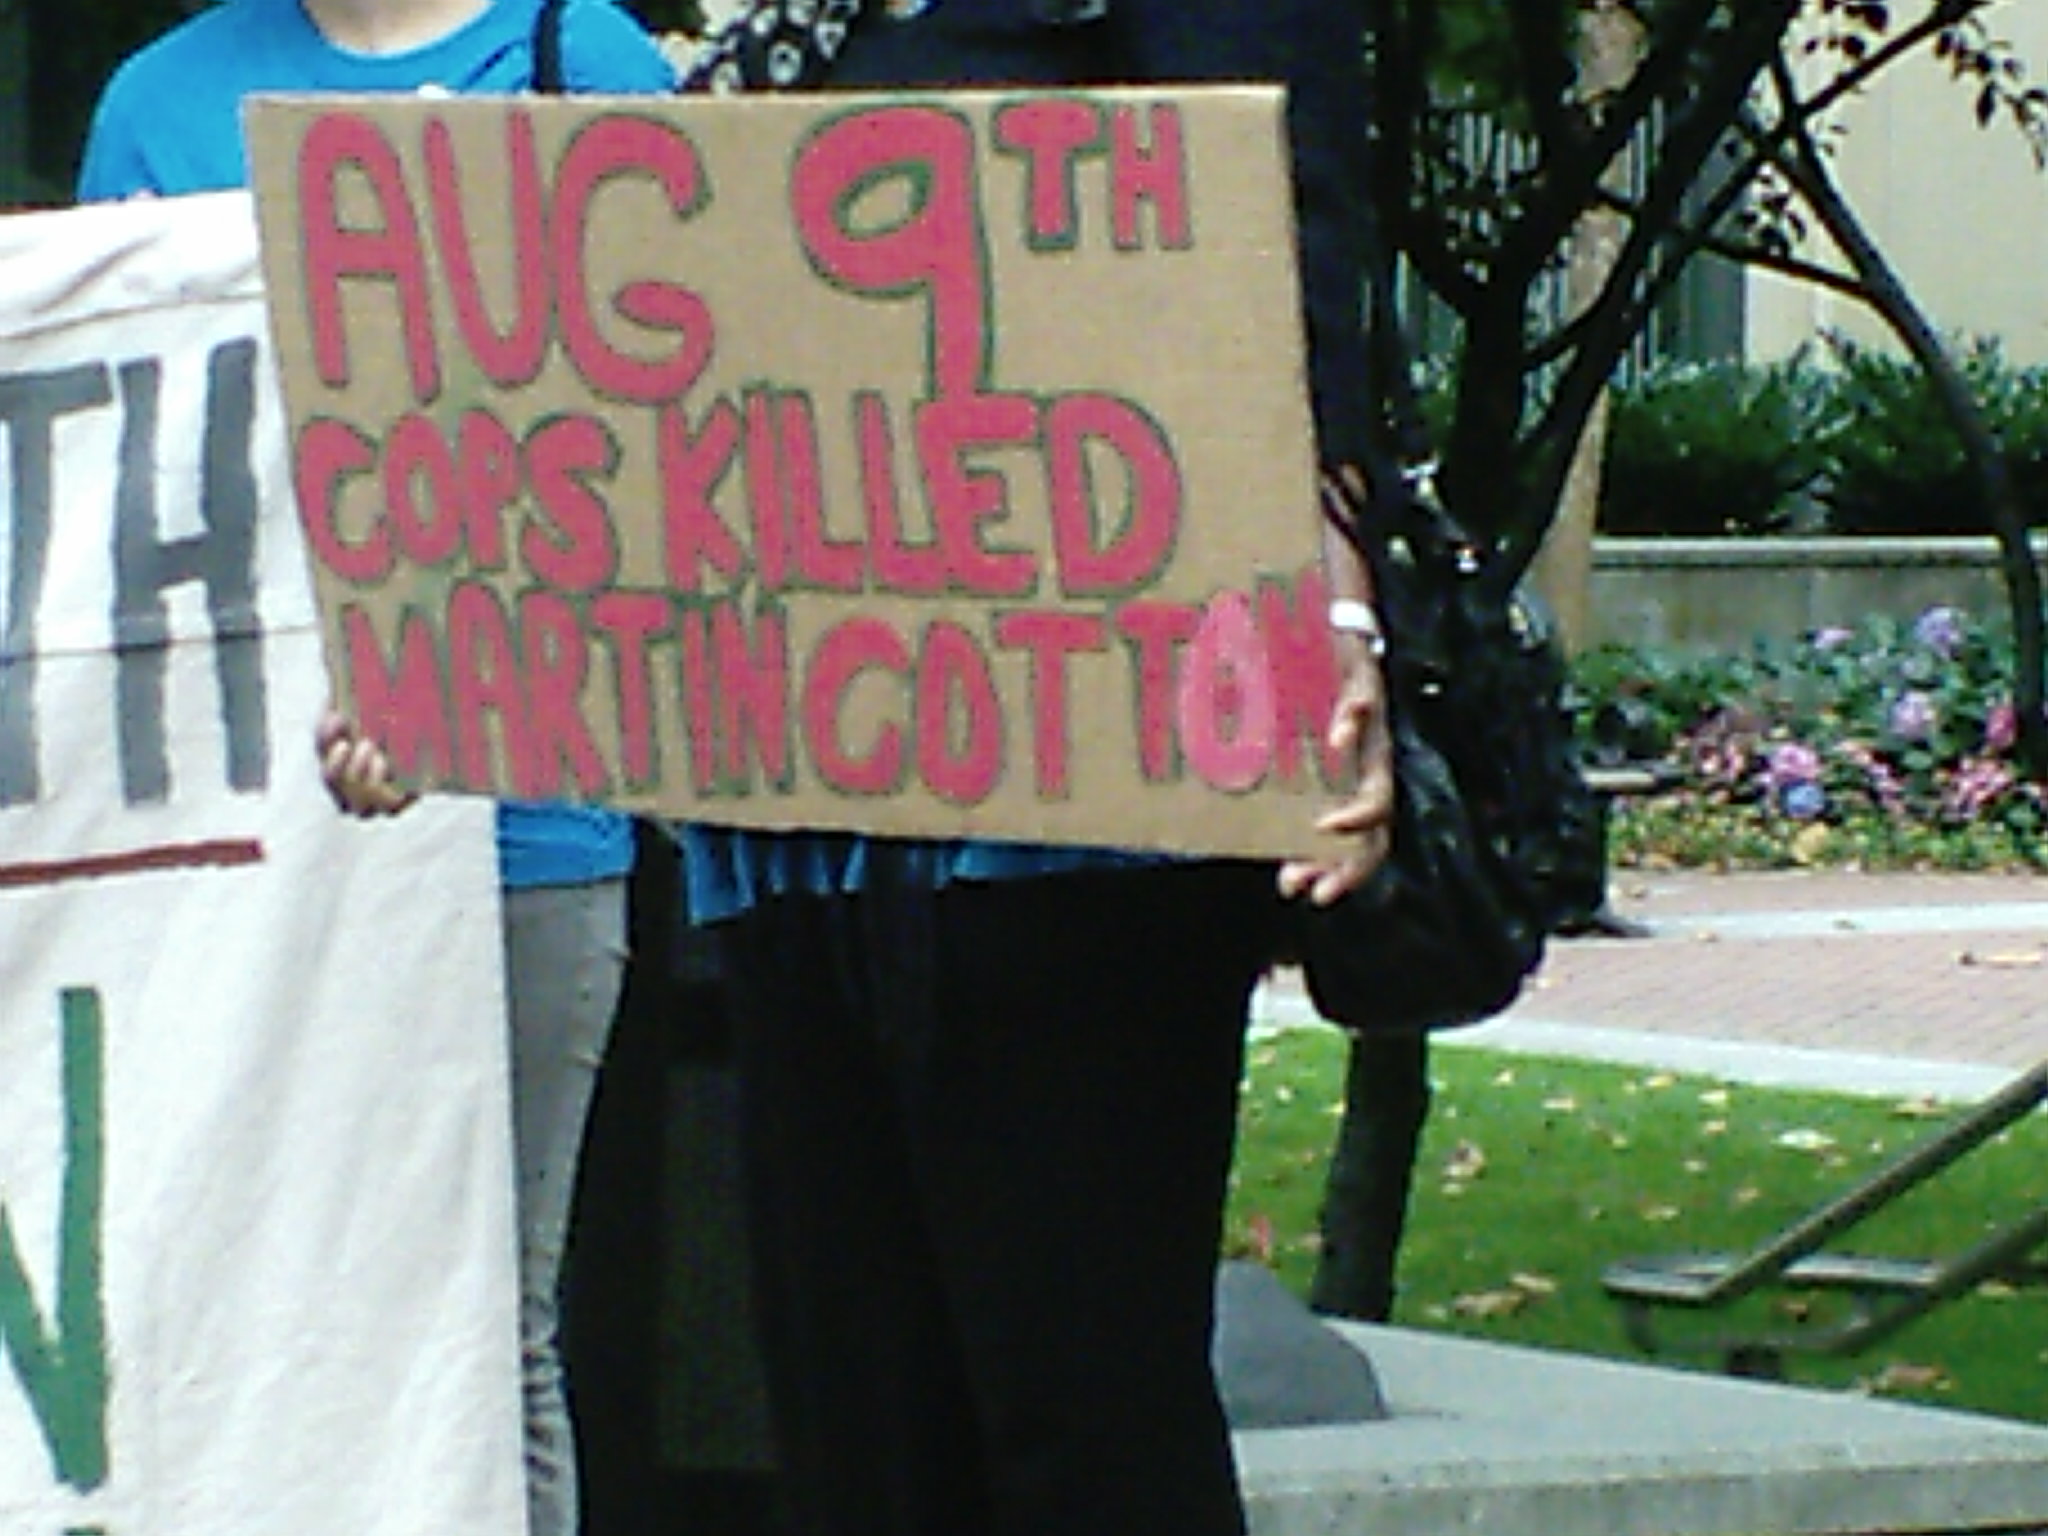 AUG 9TH
COPS KILLED
MARTIN COTTON
TH
N